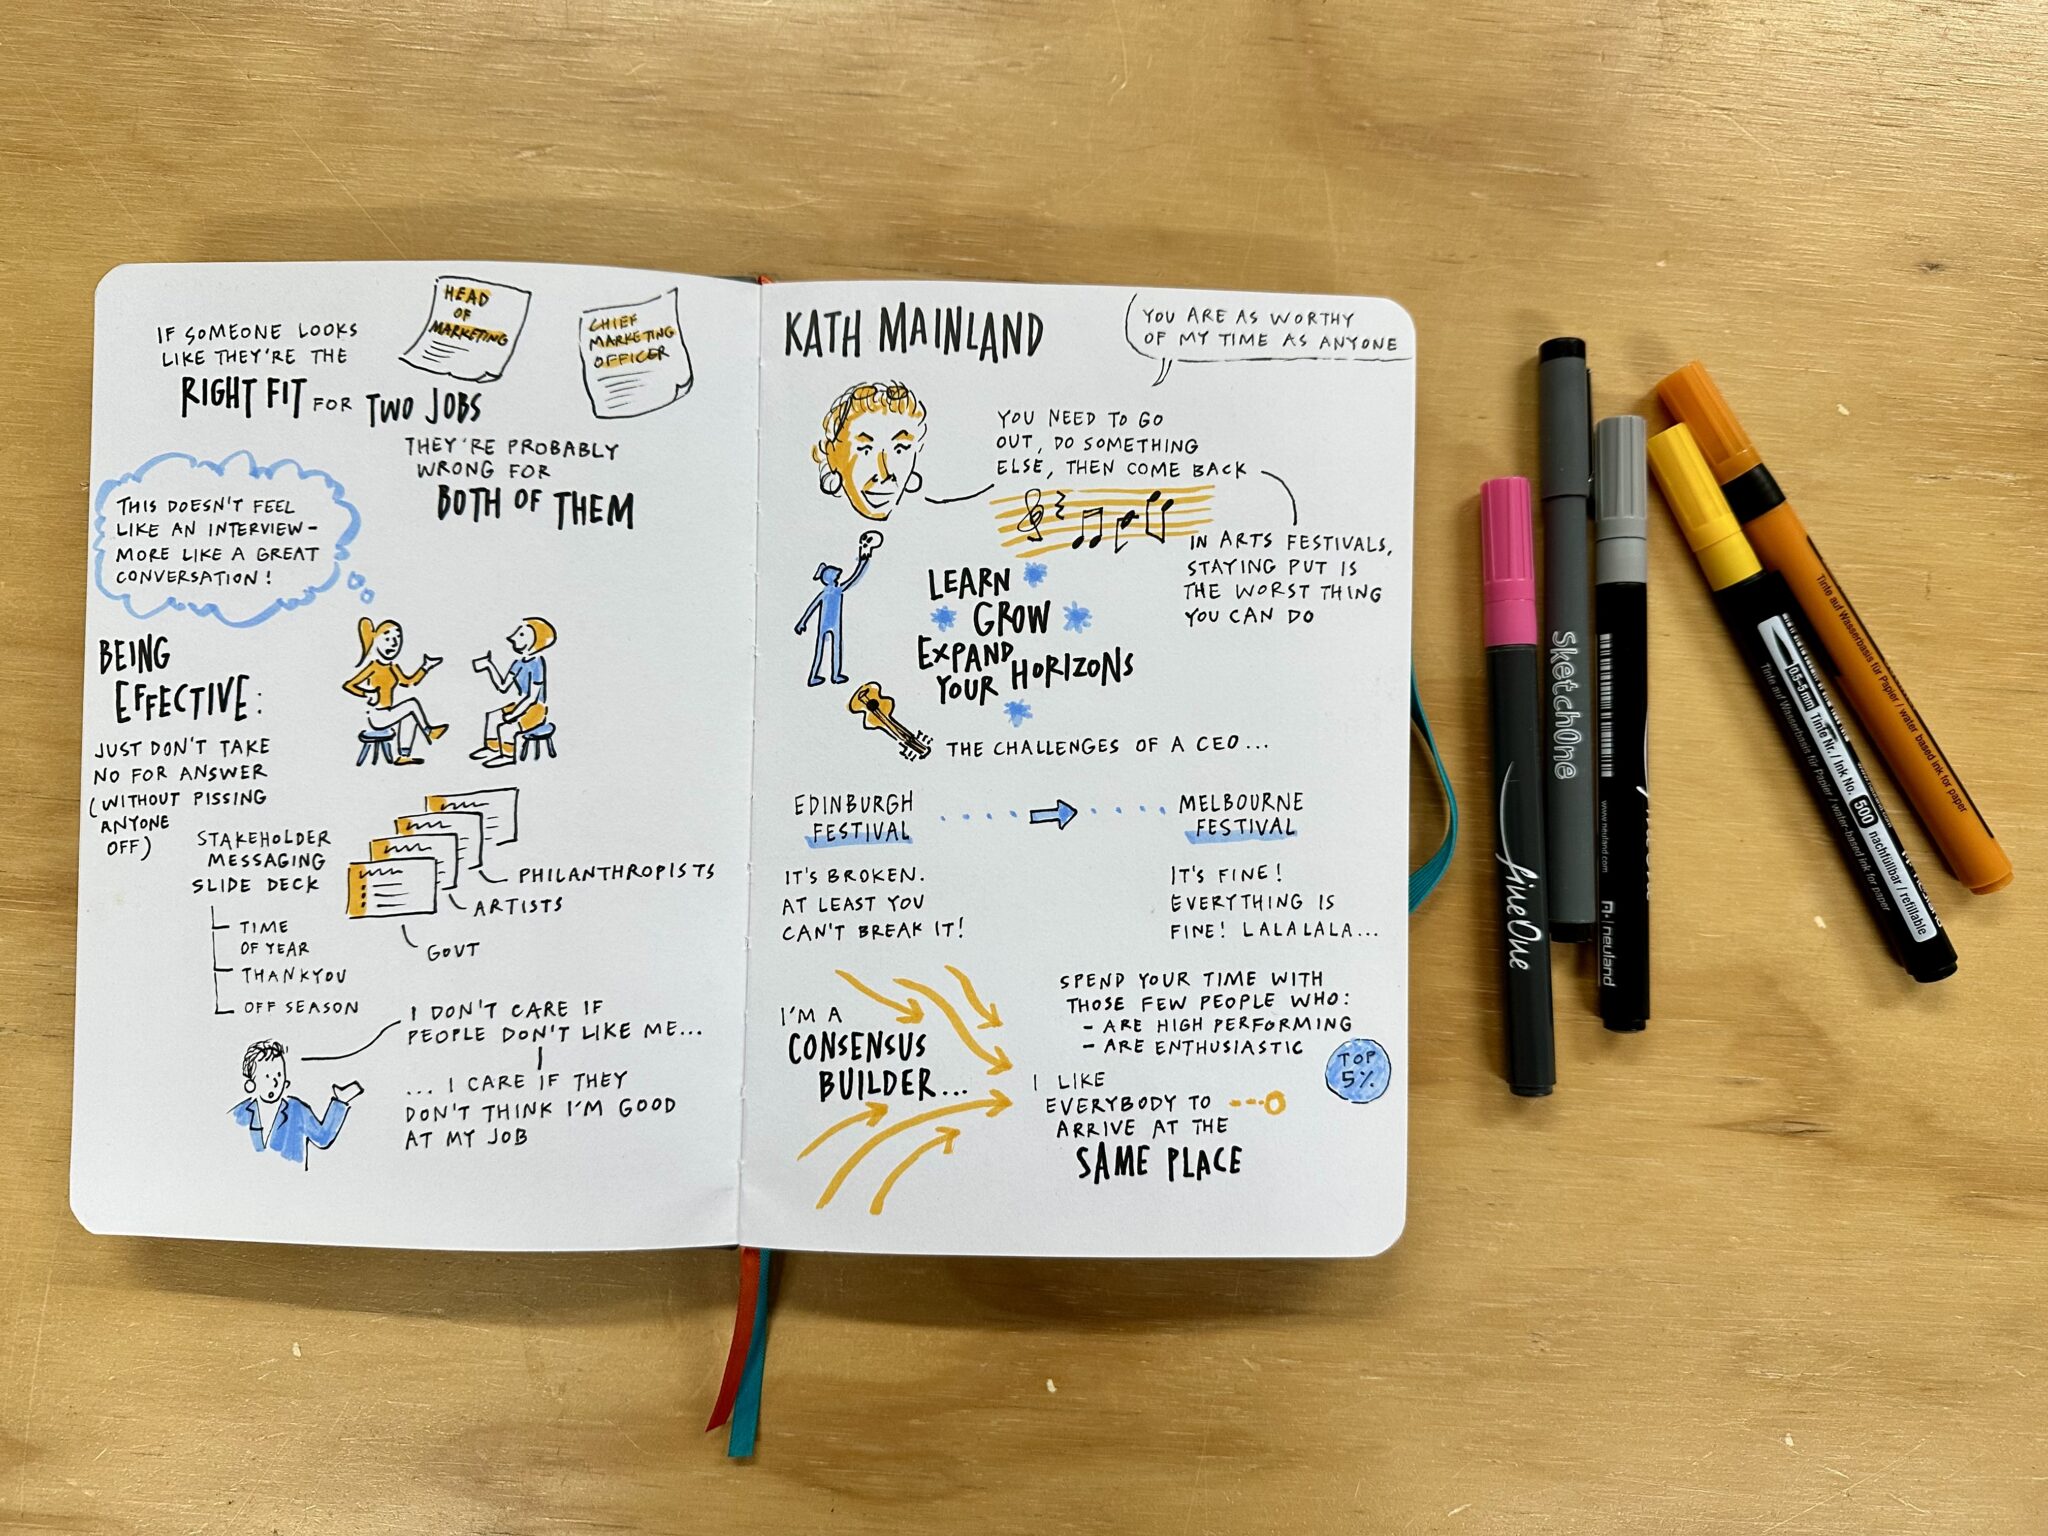 IF SOMEONE LOOKS
LIKE THEY'RE THE
RIGHT FIT FOR TWO JOBS
THEY'RE PROBABLY
WRONG FOR
BOTH OF THEM
HEAD
OF
MARKETING
CHIEF
MARKETING
OFFICER
THIS DOESN'T FEEL
LIKE AN INTERVIEW -
MORE LIKE A GREAT
CONVERSATION!
BEING
EFFECTIVE:
JUST DON'T TAKE
NO FOR ANSWER
(WITHOUT PISSING
ANYONE
OFF)
STAKEHOLDER
MESSAGING
SLIDE DECK
TIME
OF YEAR
THANKYOU
OFF SEASON
PHILANTHROPISTS
ARTISTS
GOVT
I DON'T CARE IF
PEOPLE DON'T LIKE ME...
... I CARE IF THEY
DON'T THINK I'M GOOD
AT MY JOB
KATH MAINLAND
YOU ARE AS WORTHY
OF MY TIME AS ANYONE
YOU NEED TO GO
OUT, DO SOMETHING
ELSE, THEN COME BACK
IN ARTS FESTIVALS,
STAYING PUT IS
THE WORST THING
YOU CAN DO
LEARN
GROW
EXPAND
YOUR HORIZONS
THE CHALLENGES OF A CEO...
EDINBURGH
FESTIVAL
IT'S BROKEN.
AT LEAST YOU
CAN'T BREAK IT!
MELBOURNE
FESTIVAL
IT'S FINE!
EVERYTHING IS
FINE! LALALALA...
I'M A
CONSENSUS
BUILDER...
SPEND YOUR TIME WITH
THOSE FEW PEOPLE WHO:
- ARE HIGH PERFORMING
- ARE ENTHUSIASTIC
TOP
5%
I LIKE
EVERYBODY TO
ARRIVE AT THE
SAME PLACE
fineOne
SketchOne
www.neuland.com
neuland
0.5-5 mm Tinte Nr. / Ink No. 500 nachfüllbar / refillable
Tinte auf Wasserbasis für Papier / water-based ink for paper
Tinte auf Wasserbasis für Papier / water based ink for paper